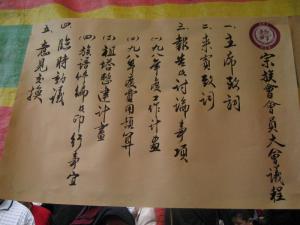 宗族會會員大會議程
一、主席致詞
二、來賓致詞
三、報告及討論事項
(一)九八年度工作計畫
(二)九八年度費用預算
(三)祖塔整建計畫
(四)族譜仵編及印行事宜
四、臨時動議
五、意見交換